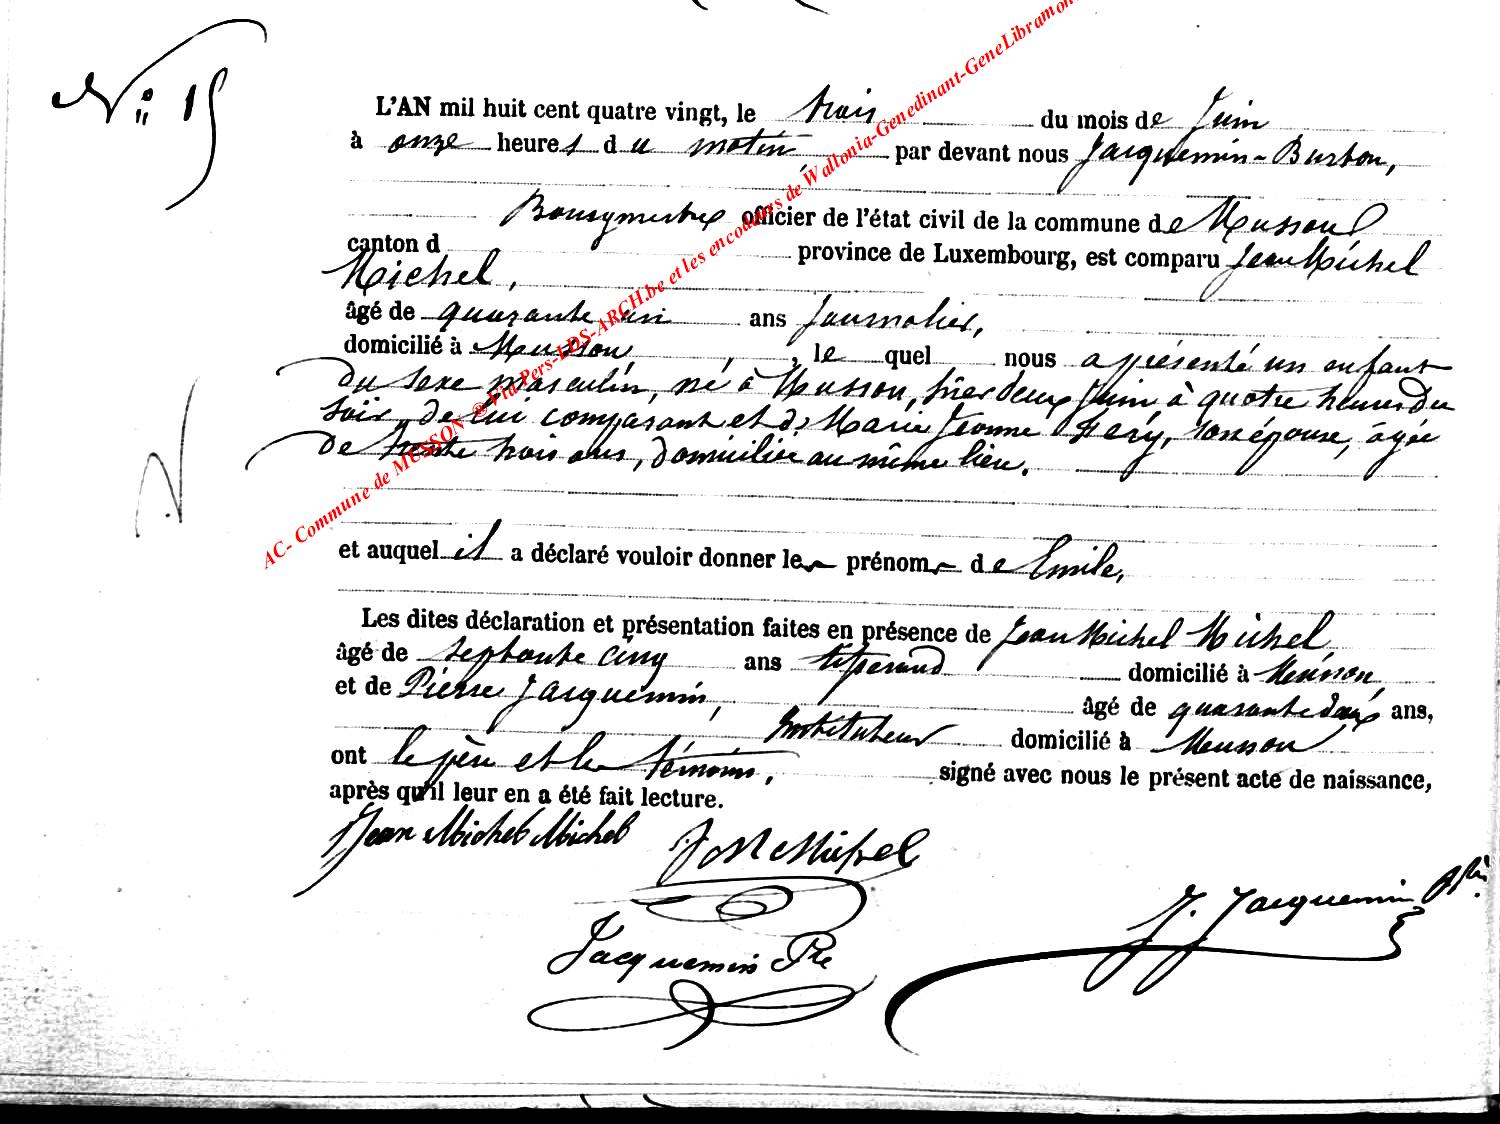 N° 15
L'AN mil huit cent quatre vingt, le trois du mois de Juin
à onze heures du matin par devant nous Jacquemin-Burton,
Bourgmestre officier de l'état civil de la commune de Musson
canton d province de Luxembourg, est comparu Jean Michel
Michel,
âgé de quarante un ans Journalier,
domicilié à Musson, le quel nous a présenté un enfant
du sexe masculin, né à Musson, hier deux Juin, à quatre heures du
soir, de lui comparant et de Marie Jeanne Fery, son épouse, âgée
de trente trois ans, domiciliée au même lieu.
et auquel il a déclaré vouloir donner le prénom de Emile,
Les dites déclaration et présentation faites en présence de Jean Michel Michel
âgé de septante cinq ans domicilié à Musson,
et de Pierre Jacquemin, âgé de quarante deux ans,
Instituteur domicilié à Musson
ont le père et les témoins, signé avec nous le présent acte de naissance,
après qu'il leur en a été fait lecture.
Jean Michel Michel J M Michel
Jacquemin Pre J. Jacquemin Btn.
AC- Commune de MUSSON ® Via Pers-LDS-ARCH.be et les encodeurs de Wallonia-Genedinant-GeneLibramon